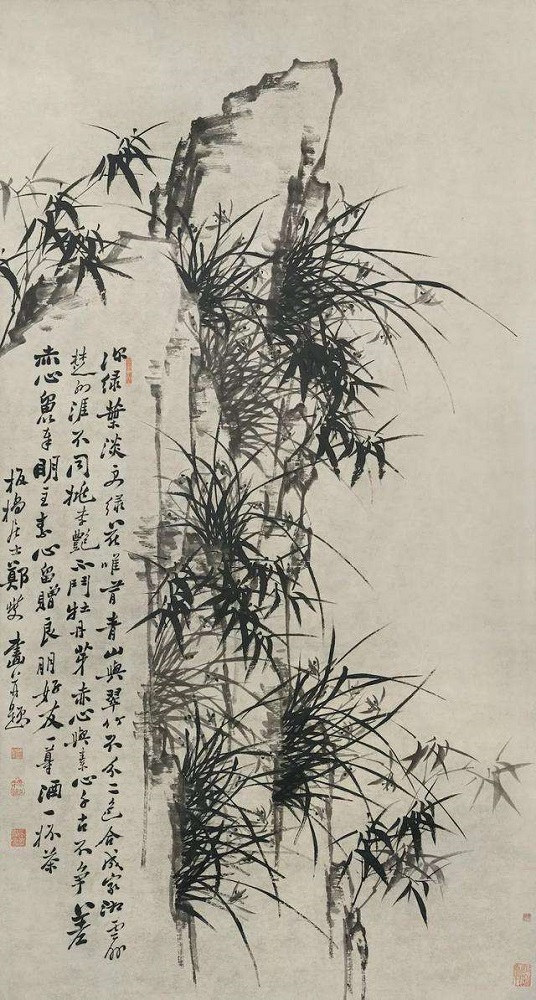 深绿叶淡文绿花唯音青山与翠竹不分二色合成家湘云外
楚雨涯不同桃李艳不斗牡丹芽赤心与素心千古不争差
赤心留奉明主素心留赠良朋好友一尊酒一杯茶
板桥居士郑燮画并题